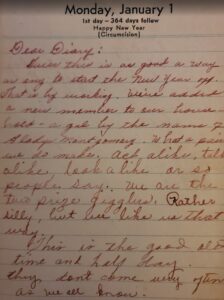 Monday, January 1
1st day - 364 days follow
Happy New Year
(Circumcision)
Dear Diary:
Guess this is as good a way
as any to start the New Year off.
That is by working. We've added
a new member to our house
hold - a gal by the name of
Gladys Montgomery. What a pair
we do make. Act alike, talk
alike, look alike or so
people say. We are the
two prize giggles. Rather
silly, but we like us that
way.
This is the good old
time and half day.
they don't come very often
as we all know.